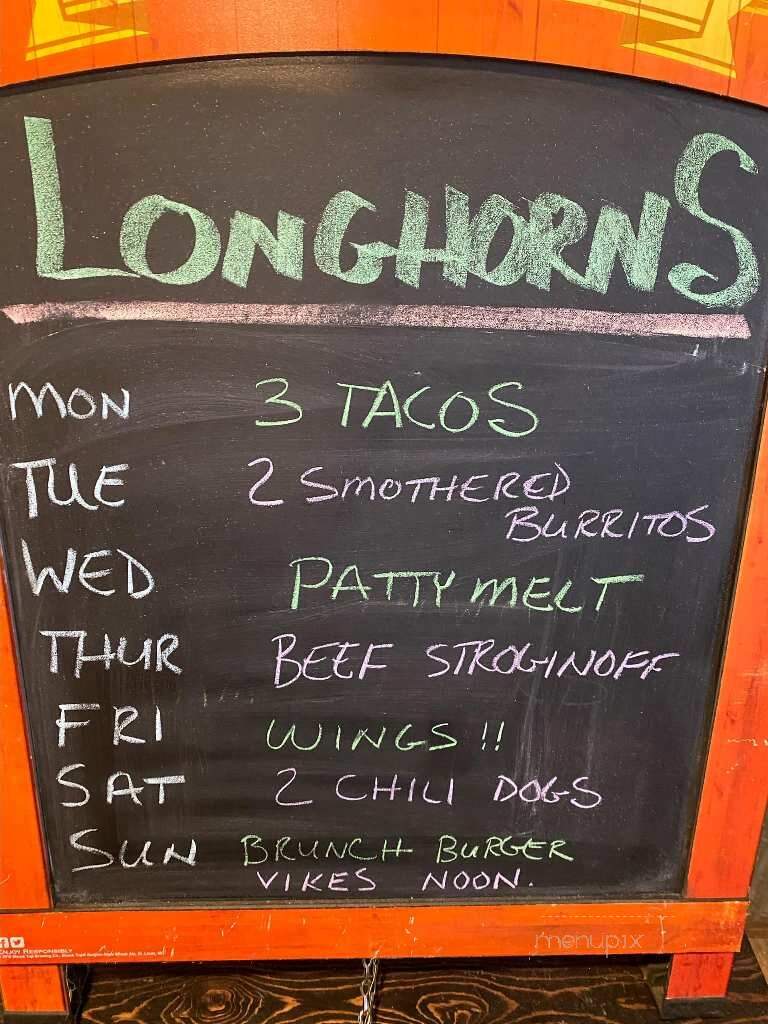 LONGHORNS
MON 3 TACOS
TUE 2 SMOTHERED
BURRITOS
WED PATTY MELT
THUR BEEF STROGINOFF
FRI WINGS !!
SAT 2 CHILI DOGS
SUN BRUNCH BURGER
VIKES NOON.
ENJOY RESPONSIBLY
menupix